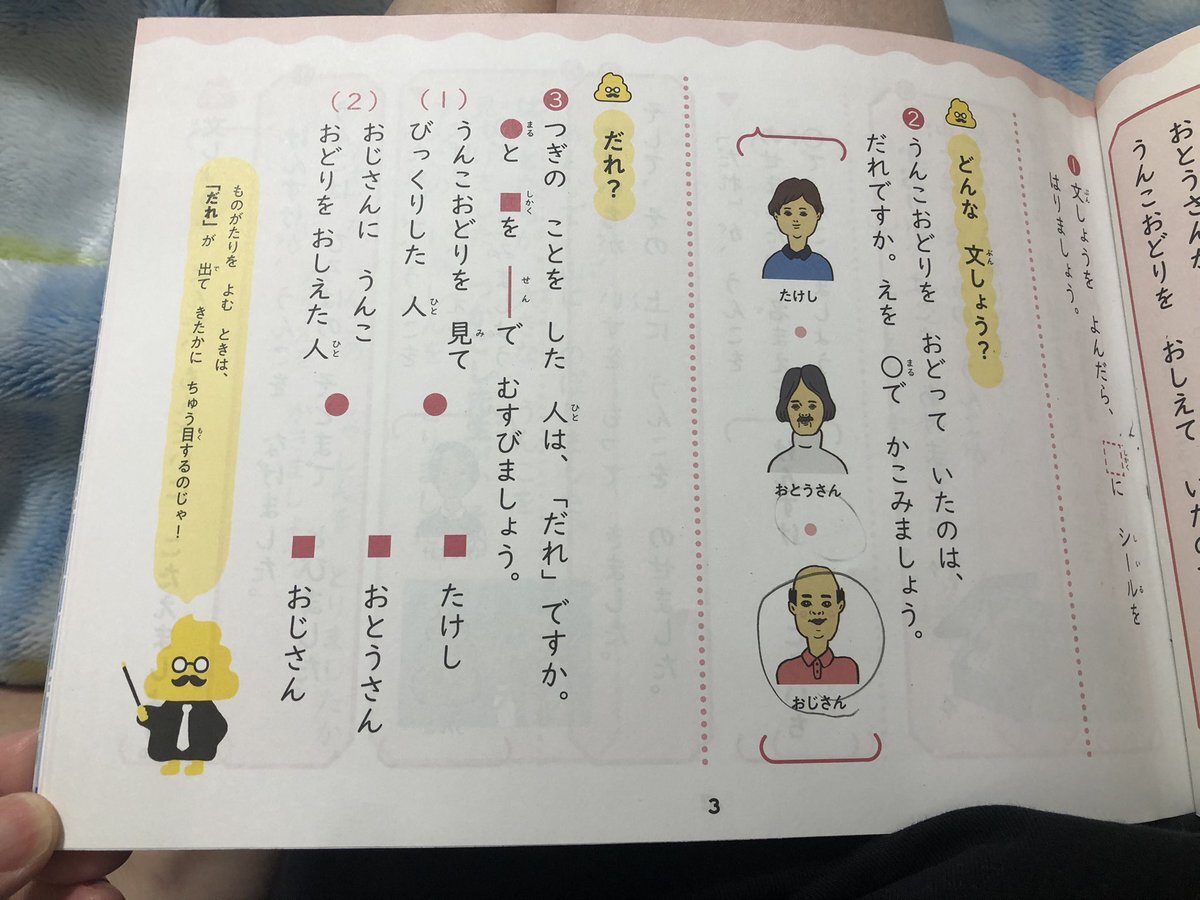 おとうさんが
うんこおどりを おしえて いたので
❶文しょうを よんだら、 に シールを
はりましょう。
どんな 文しょう？
❷うんこおどりを おどって いたのは、
だれですか。えを ○で かこみましょう。
たけし
おとうさん
おじさん
だれ？
❸つぎの ことを した 人は、「だれ」ですか。
●と ■を ―で むすびましょう。
(1)うんこおどりを 見て
びっくりした 人
(2)おじさんに うんこ
おどりを おしえた 人
たけし
おとうさん
おじさん
ものがたりを よむ ときは、
「だれ」が 出て きたかに ちゅう目するのじゃ！
3